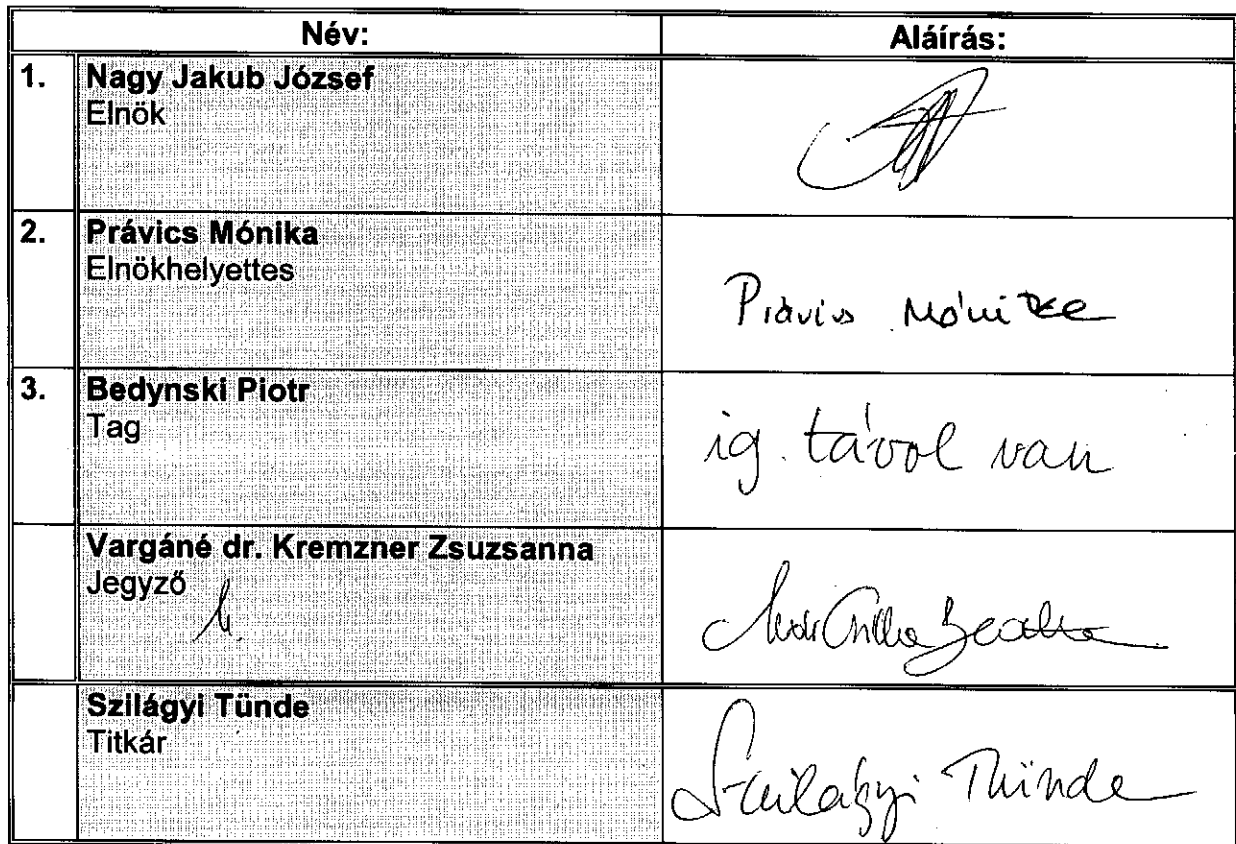 Név: Aláírás:
1. Nagy Jakub József
Elnök
2. Právics Mónika
Elnökhelyettes
Právics Mónika
3. Bedynski Piotr
Tag
ig. távol van
Vargáné dr. Kremzner Zsuzsanna
Jegyző
Szilágyi Tünde
Titkár
Szilágyi Tünde